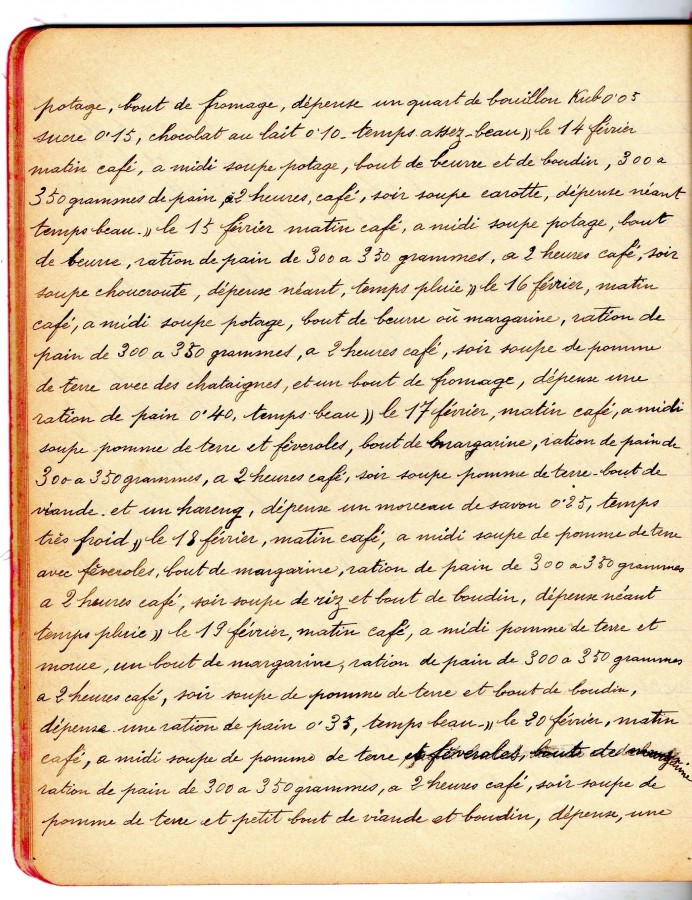 potage, bout de fromage, dépense un quart de bouillon Kub 0'05
sucre 0'15, chocolat au lait 0'10 - temps assez - beau » le 14 février
matin café, a midi soupe potage, bout de beurre et de boudin, 300 a
350 grammes de pain, à 2 heures, café, soir soupe carotte, dépense néant
temps beau. » le 15 février matin café, a midi soupe potage, bout
de beurre, ration de pain de 300 a 350 grammes, a 2 heures café, soir
soupe choucroute, dépense néant, temps pluie » le 16 février, matin
café, a midi soupe potage, bout de beurre où margarine, ration de
pain de 300 a 350 grammes, a 2 heures café, soir soupe de pomme
de terre avec des chataignes, et un bout de fromage, dépense une
ration de pain 0'40, temps beau » le 17 février, matin café, a midi
soupe pomme de terre et féveroles, bout de margarine, ration de pain de
300 a 350 grammes, a 2 heures café, soir soupe pomme de terre - bout de
viande - et un hareng, dépense un morceau de savon 0'25, temps
très froid » le 18 février, matin café, a midi soupe de pomme de terre
avec féveroles, bout de margarine, ration de pain de 300 a 350 grammes
a 2 heures café, soir soupe de riz et bout de boudin, dépense néant
temps pluie » le 19 février, matin café, a midi pomme de terre et
morue, un bout de margarine, ration de pain de 300 a 350 grammes
a 2 heures café, soir soupe de pomme de terre et bout de boudin,
dépense une ration de pain 0'35, temps beau - » le 20 février, matin
café, a midi soupe de pomme de terre et féveroles, bout de margarine
ration de pain de 300 a 350 grammes, a 2 heures café, soir soupe de
pomme de terre et petit bout de viande et boudin, dépense, une